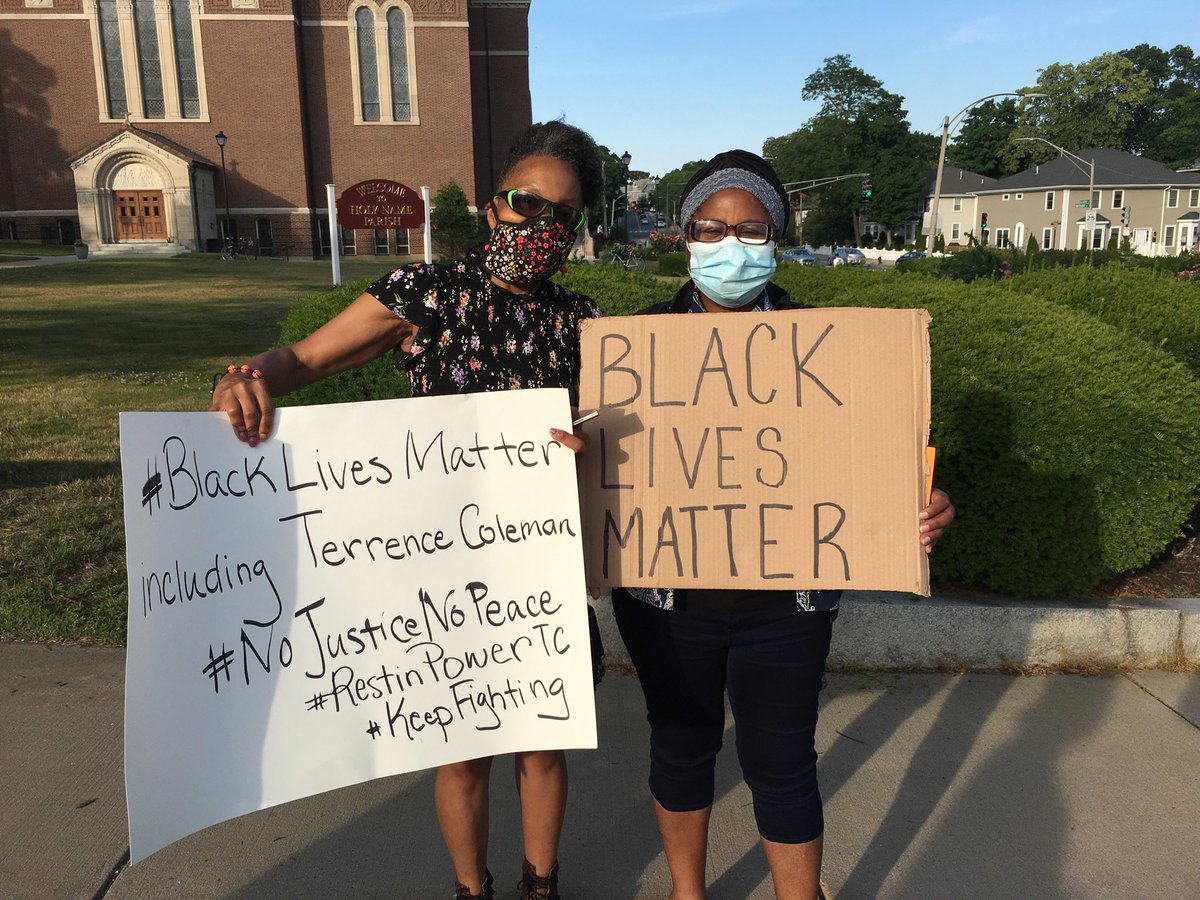 WELCOME
TO
HOLY NAME
PARISH
#BlackLives Matter
including Terrence Coleman
#NoJusticeNoPeace
#RestinPowerTC
#KeepFighting
BLACK
LIVES
MATTER